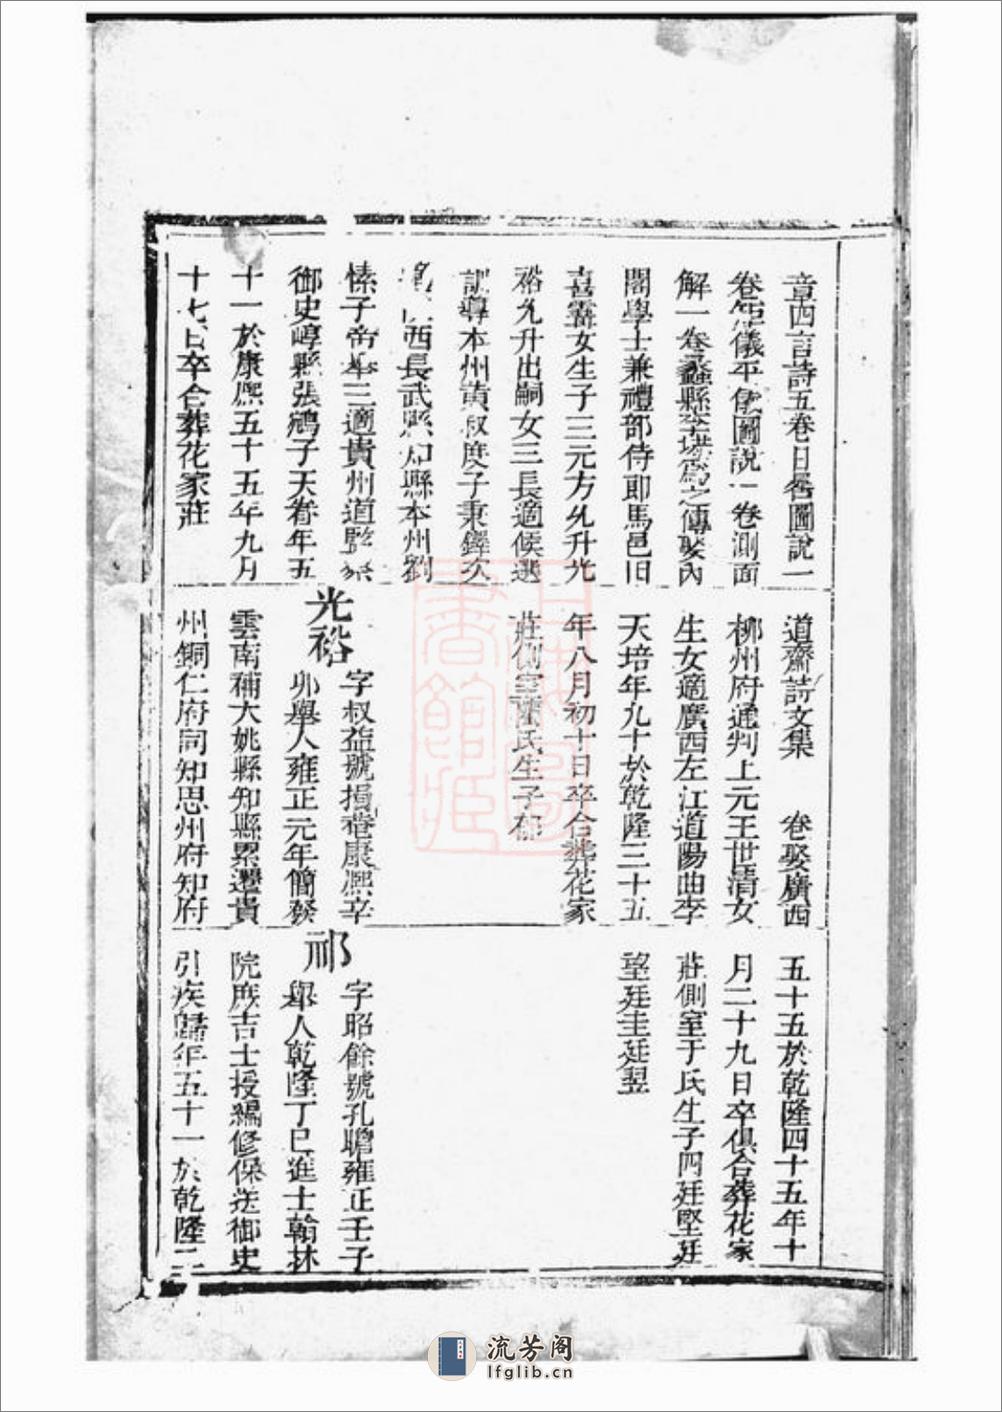 章四言詩五卷日晷圖說一
卷矩儀平儀圖說一卷測面
解一卷蠡縣李塨為之傳娶內
閣學士兼禮部侍郎馬邑田
喜霽女生子三元方允升光
裕允升出嗣女三長適候選
訓導本州黃叔度子秉鐸次
西長武縣知縣本州劉
愫子帝 三適貴州道監察
御史崞縣張鵷子天眷年五
十一於康熙五十五年九月
十七日卒合葬花家莊
道齋詩文集 卷娶廣西
柳州府通判上元王世清女
生女適廣西左江道陽曲李
天培年九十於乾隆三十五
年八月初十日卒合葬花家
莊側室陳氏生子祁
光裕
字叔益號損菴康熙辛
卯舉人雍正元年簡發
雲南補大姚縣知縣累遷貴
州銅仁府同知思州府知府
五十五於乾隆四十五年十
月二十九日卒俱合葬花家
莊側室于氏生子四廷堅廷
望廷圭廷翌
祁
字昭餘號孔瞻雍正壬子
舉人乾隆丁巳進士翰林
院庶吉士授編修保送御史
引疾歸年五十一於乾隆二
上海圖書館藏
流芳阁
lfglib.cn